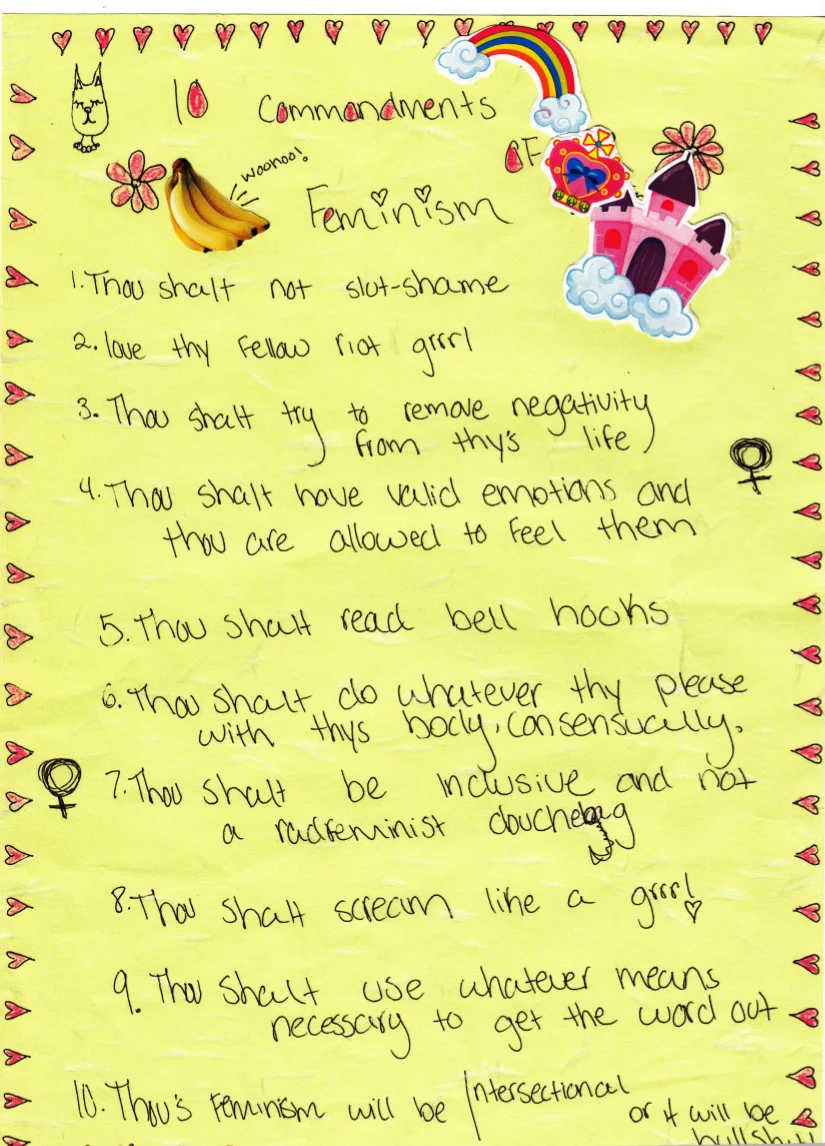 10 Commandments
OF
woohoo!
Feminism
1. Thou shalt not slut-shame
2. love thy fellow riot grrrl
3. Thou shalt try to remove negativity
from thy's life
4. Thou shalt have valid emotions and
thou are allowed to feel them
5. Thou shalt read bell hooks
6. Thou shalt do whatever thy please
with thys body, consensually.
7. Thou shalt be inclusive and not
a radfeminist douchebag
8. Thou shalt scream like a grrrl
9. Thou shalt use whatever means
necessary to get the word out
10. Thou's Feminism will be Intersectional
or it will be
bullshit